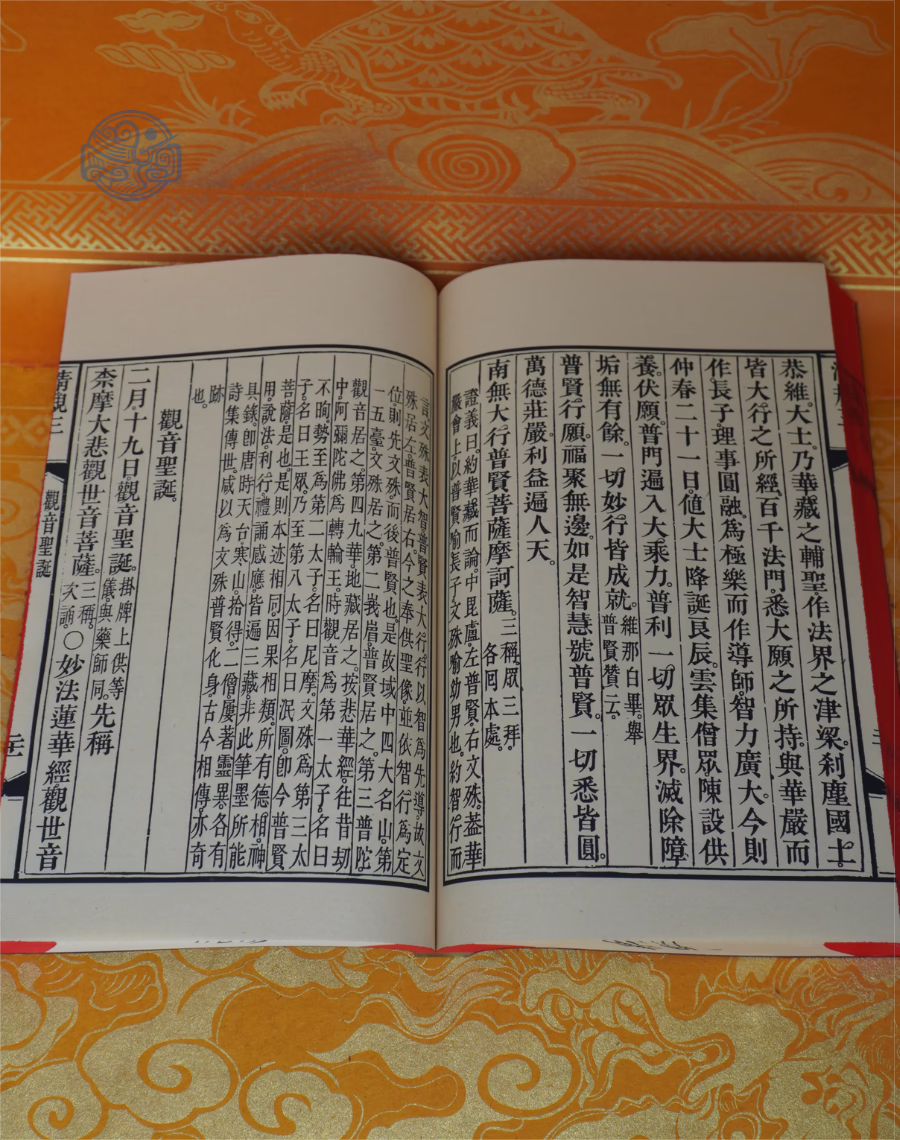 恭維。大士。乃華藏之輔聖。作法界之津梁。剎塵國土。
皆大行之所經。百千法門。悉大願之所持。與華嚴而
作長子。理事圓融。為極樂而作導師。智力廣大。今則
仲春二十一日。值大士降誕良辰。雲集僧眾。陳設供
養。伏願。普門遍入大乘力。普利一切眾生界。滅除障
垢無有餘。一切妙行皆成就。維那白畢。舉
普賢贊云。
普賢行願。福聚無邊。如是智慧號普賢。一切悉皆圓。
萬德莊嚴。利益遍人天。
南無大行普賢菩薩摩訶薩。三稱。眾三拜。
各囘本處。
證義曰。約華藏而論。中毘盧。左普賢。右文殊。葢華
嚴會上。以普賢喻長子。文殊喻幼男也。約智行而
言。文殊表大智。普賢表大行。行以智爲先導。故文
殊居左。普賢居右。今之奉供聖像。並依智行爲定
位。則先文殊。而後普賢也。是故域中四大名山。第
一五臺。文殊居之。第二峩嵋。普賢居之。第三普陀。
觀音居之。第四九華。地藏居之。按悲華經。往昔劫
中。阿彌陀佛爲轉輪王。時觀音爲第一太子。名曰
不眴。勢至爲第二太子。名曰尼摩。文殊爲第三太
子。名曰王眾。乃至第八太子。名曰泯圖。卽今普賢
菩薩是也。是則本迹相同。因果相類。所有德相。神
用。說法。利行。禮誦感應。皆遍三藏。非此筆墨所能
具錄。卽唐時天台寒山。拾得。二僧。屢著靈異。各有
詩集傳世。咸以爲文殊普賢化身。古今相傳。亦奇
跡
也。
觀音聖誕。
二月。十九日。觀音聖誕。掛牌上供等
儀。與藥師同。先稱
柰摩大悲觀世音菩薩。三稱。
次誦。〇妙法蓮華經觀世音
清規三
觀音聖誕